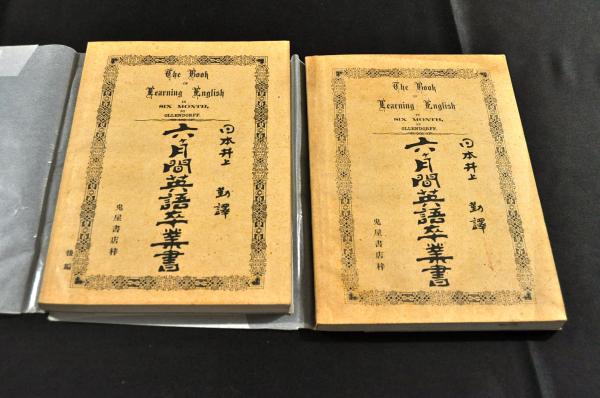 The Book
OF
Learning English
IN
SIX MONTH,
BY
OLLENDORFF.
日本井上 勤譯
六ケ月間英語卒業書
兎屋書店梓
後編
The Book
OF
Learning English
IN
SIX MONTH,
BY
OLLENDORFF.
日本井上 勤譯
六ケ月間英語卒業書
兎屋書店梓